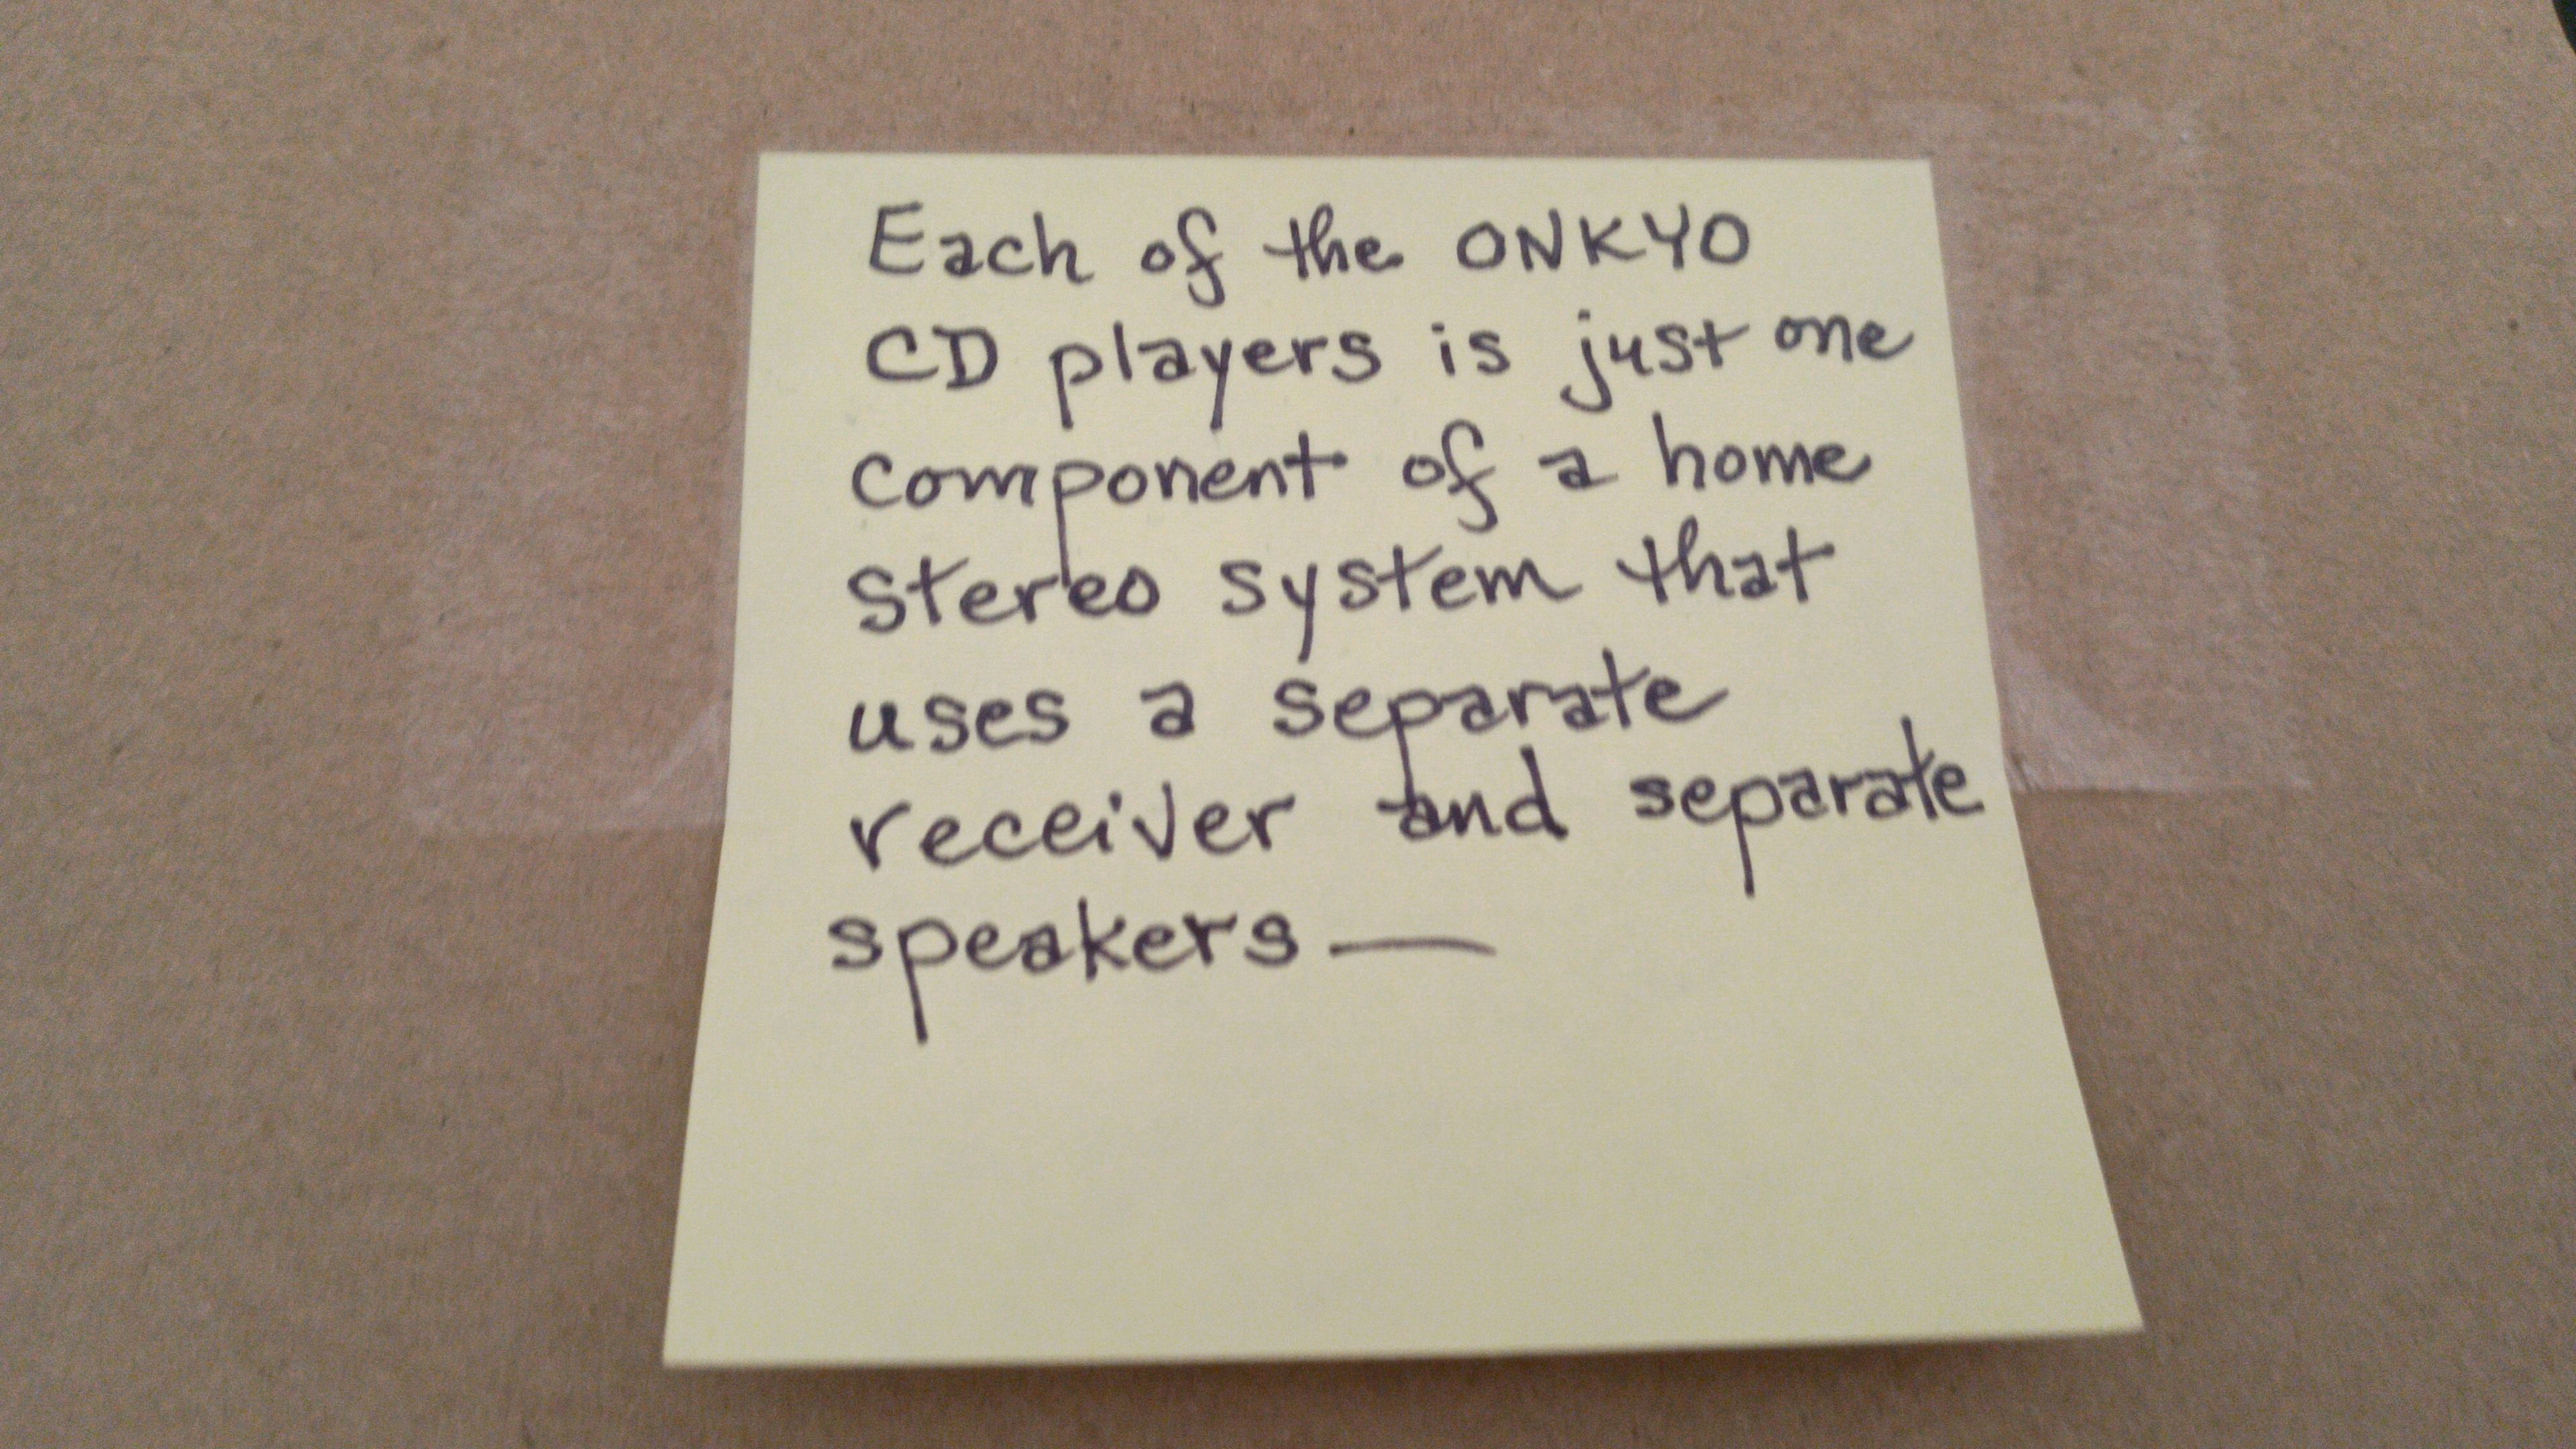 Each of the ONKYO
CD players is just one
component of a home
stereo system that
uses a separate
receiver and separate
speakers —